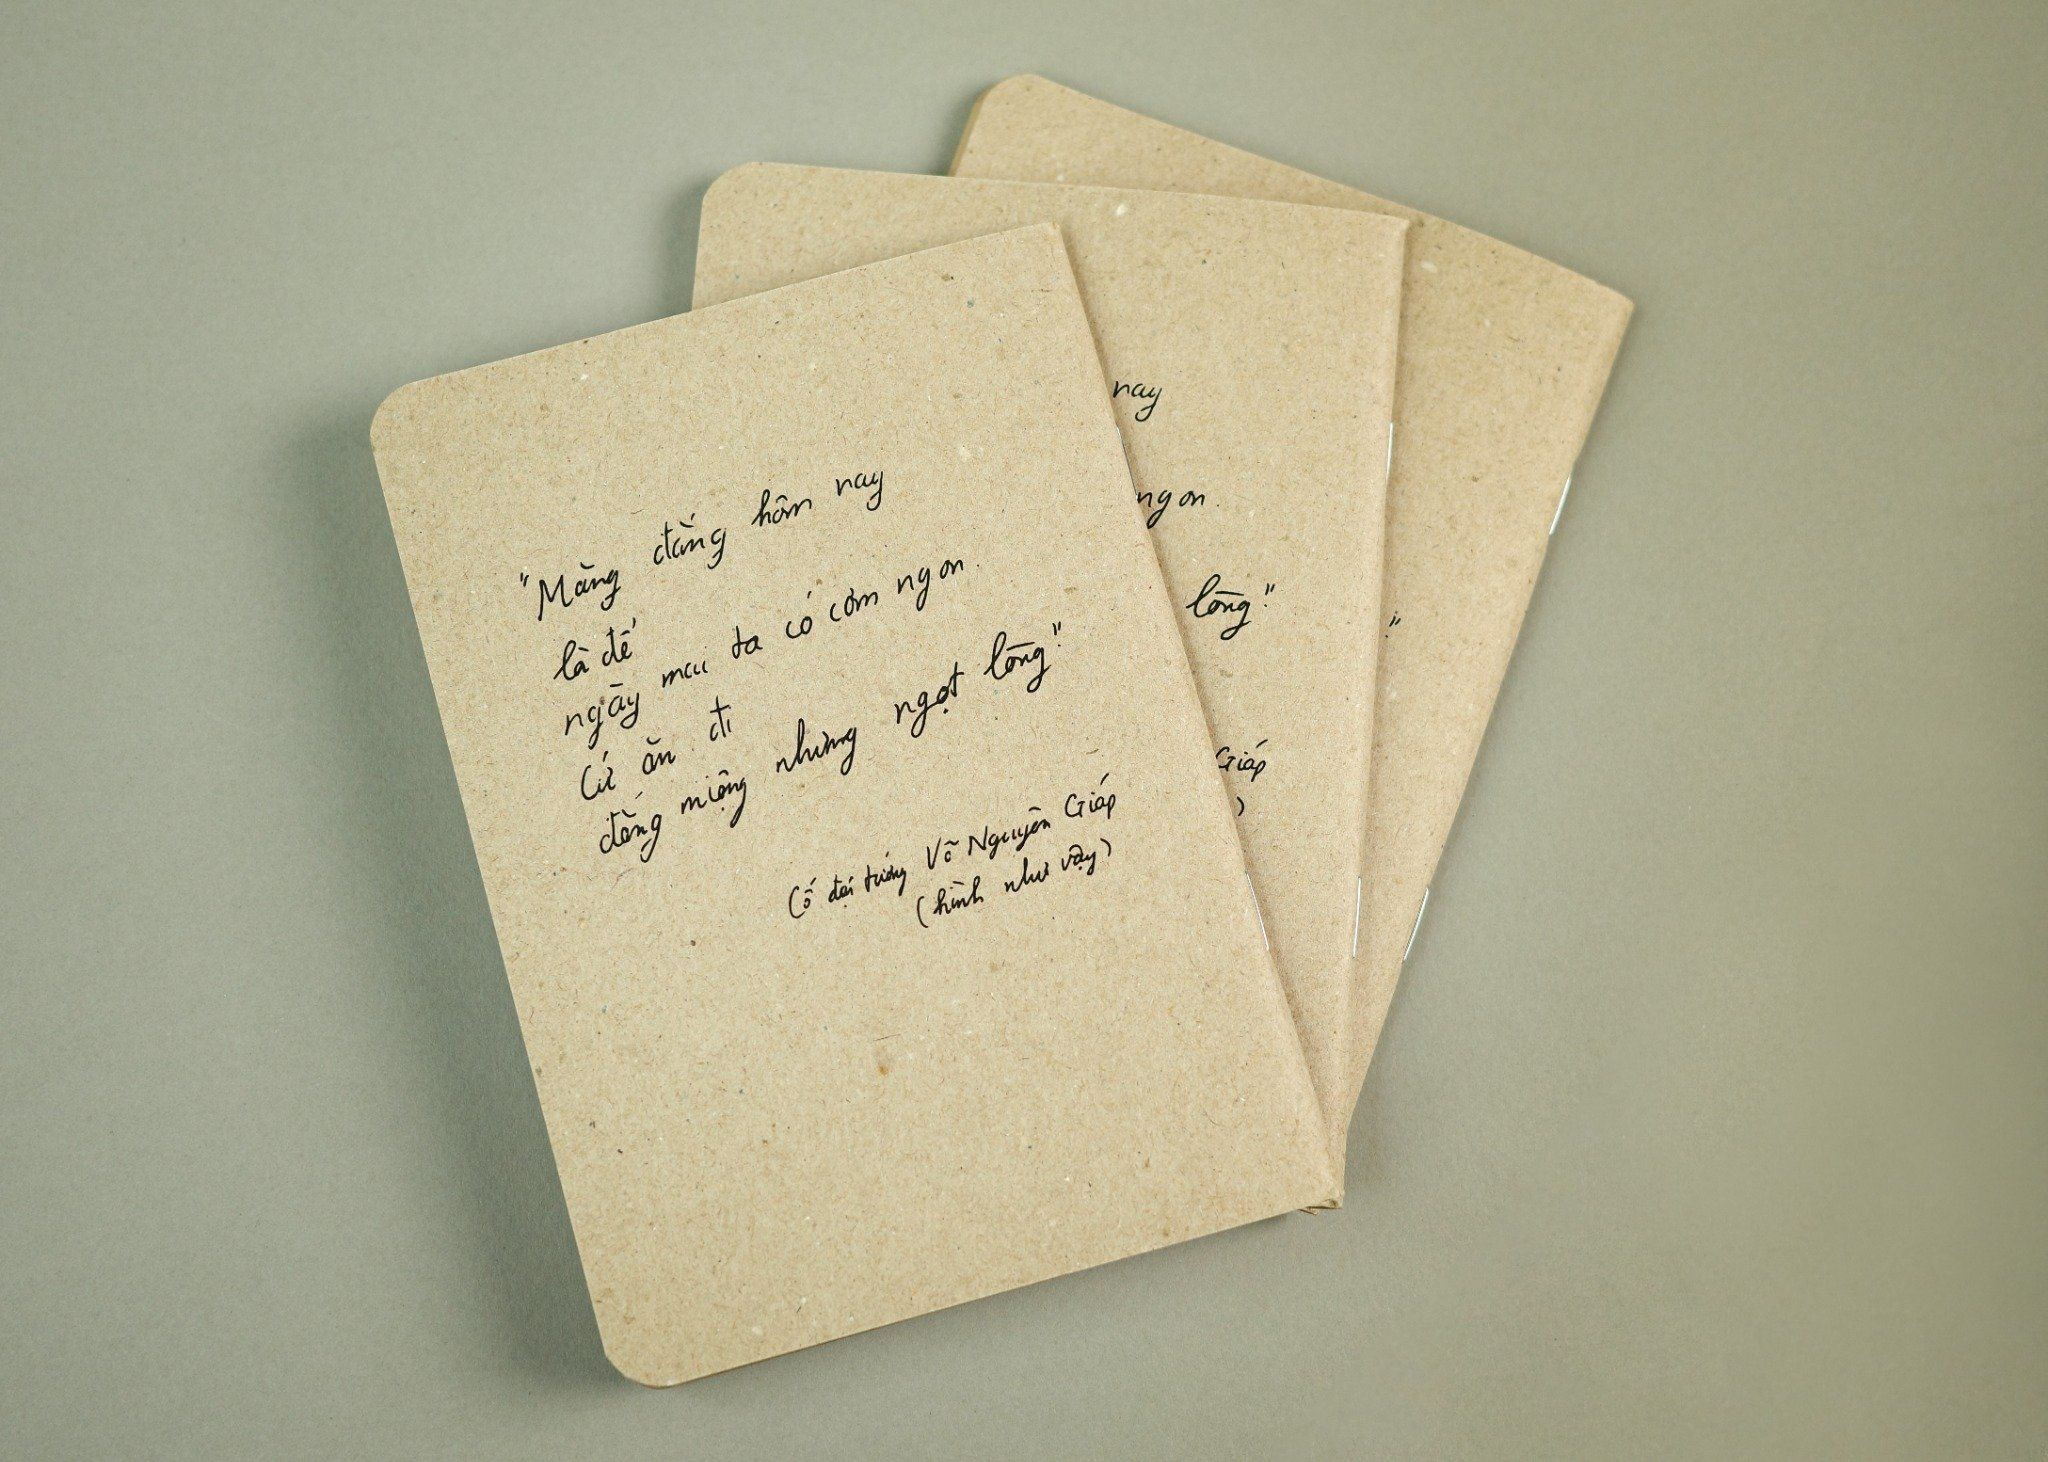 "Măng đắng hôm nay
là để
ngày mai ta có cơm ngon.
Cứ ăn đi
đắng miệng nhưng ngọt lòng."
Cố đại tướng Võ Nguyên Giáp
(hình như vậy)
nay
ngon.
lòng."
Giáp
)
."